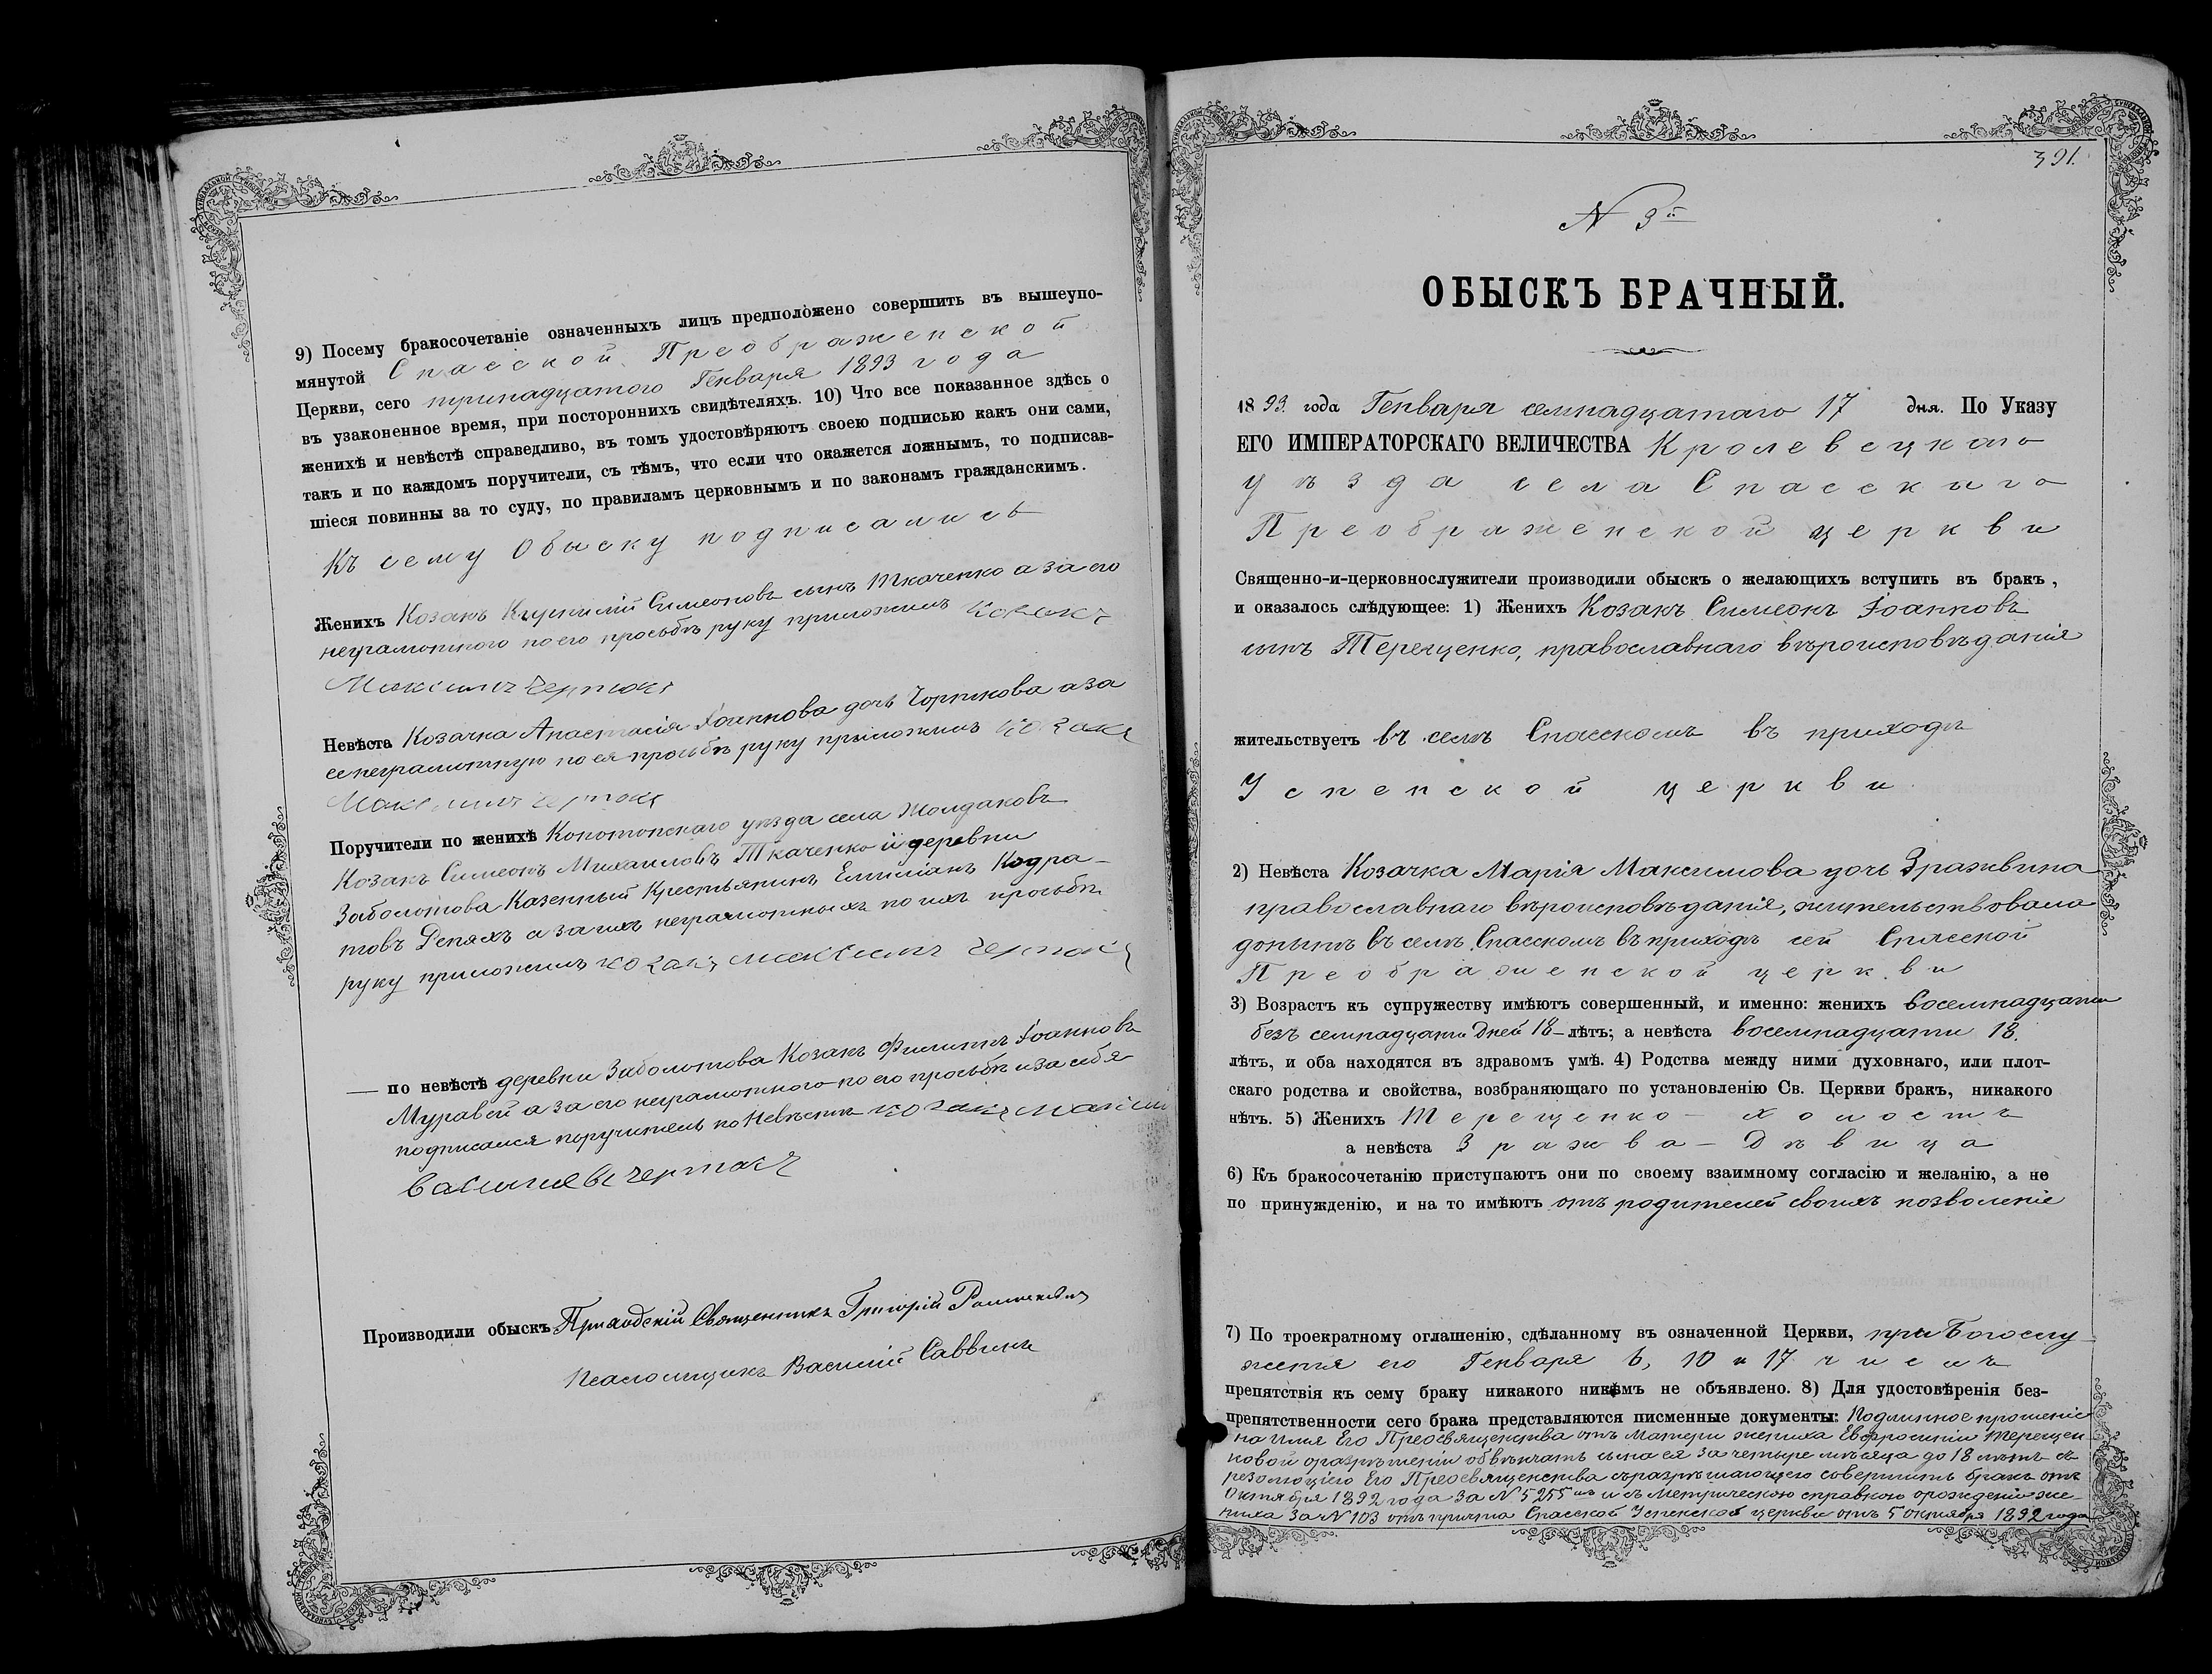 9) Посему бракосочетаніе означенныхъ лицъ предположено совершить въ вышеупо-
мянутой Спасской Преображенской
Церкви, сего тринадцатого Генваря 1893 года
въ узаконенное время, при постороннихъ свидѣтеляхъ. 10) Что все показанное здѣсь о
женихѣ и невѣстѣ справедливо, въ томъ удостовѣряютъ своею подписью какъ они сами,
такъ и по каждомъ поручители, съ тѣмъ, что если что окажется ложнымъ, то подписав-
шіеся повинны за то суду, по правиламъ церковнымъ и по законамъ гражданскимъ.
Къ сему Обыску подписались
Женихъ Козакъ Симеоновъ сынъ Ткаченко а за его
неграмотного по его просьбѣ руку приложилъ козакъ
Максимъ Чертокъ
Невѣста Козачка Анастасія Іоаннова дочь а за
ее неграмотную по ея просьбѣ руку приложилъ козакъ
Максимъ Чертокъ
Поручители по женихѣ Конотопскаго уѣзда села Жолдаковъ
Козакъ Симеонъ Михаиловъ Ткаченко и деревни
Заболотова Казенный Крестьянинъ Емиліанъ Кодра-
товъ а за ихъ неграмотныхъ по ихъ просьбѣ
руку приложилъ козакъ Максимъ Чертокъ
— по невѣстѣ деревни Заболотова Козакъ Филиппъ Іоанновъ
Муравей а за его неграмотного по его просьбѣ и за себя
подписался поручитель по Невѣстѣ козакъ Максим
Васильевъ Чертокъ
Производили обыскъ Приходскій Священникъ Григорій
Псаломщикъ Василій Саввинъ
391.
N 3й
ОБЫСКЪ БРАЧНЫЙ.
1893 года Генваря семнадцатаго 17 дня. По Указу
ЕГО ИМПЕРАТОРСКАГО ВЕЛИЧЕСТВА Кролевецкаго
уѣзда села Спасскаго
Преображенской церкви
Священно-и-церковнослужители производили обыскъ о желающихъ вступить въ бракъ,
и оказалось слѣдующее: 1) Женихъ Козакъ Симеонъ Іоанновъ
сынъ Терещенко, православнаго вѣроисповѣданія
жительствуетъ въ селѣ Спасскомъ въ приходѣ
Успенской церкви.
2) Невѣста Козачка Марія Максимова дочь Зражвина
православнаго вѣроисповѣданія, жительствовала
донынѣ въ селѣ Спасскомъ въ приходѣ сей Спасской
Преображенской церкви
3) Возрастъ къ супружеству имѣютъ совершенный, и именно: женихъ восемнадцати
безъ семнадцати Дней 18-лѣтъ; а невѣста восемнадцати 18.
лѣтъ, и оба находятся въ здравомъ умѣ. 4) Родства между ними духовнаго, или плот-
скаго родства и свойства, возбраняющаго по установленію Св. Церкви бракъ, никакого
нѣтъ. 5) Женихъ Терещенко — холостъ
а невѣста Зражва — Дѣвица
6) Къ бракосочетанію приступаютъ они по своему взаимному согласію и желанію, а не
по принужденію, и на то имѣютъ отъ родителей своихъ позволеніе
7) По троекратному оглашенію, сдѣланному въ означенной Церкви, при Богослу
женія его Генваря 6, 10 и 17 числъ
препятствія къ сему браку никакого никѣмъ не объявлено. 8) Для удостовѣренія без-
препятственности сего брака представляются писменные документы: Подлинное прошеніе
на имя Его Преосвященства отъ Матери жениха Евфросиніи Терещен
ковой о разрѣшеніи обвѣнчать сына ея за четыре мѣсяца до 18 лѣтъ съ
резолюціею Его Преосвященства съ разрѣшающаго совершить бракъ отъ
Октября 1892 года за N 5255 и съ Метрическою справкою о рожденіи же-
ниха за N 103 отъ причта Спасской Успенской церкви отъ 5 октября 1892 года